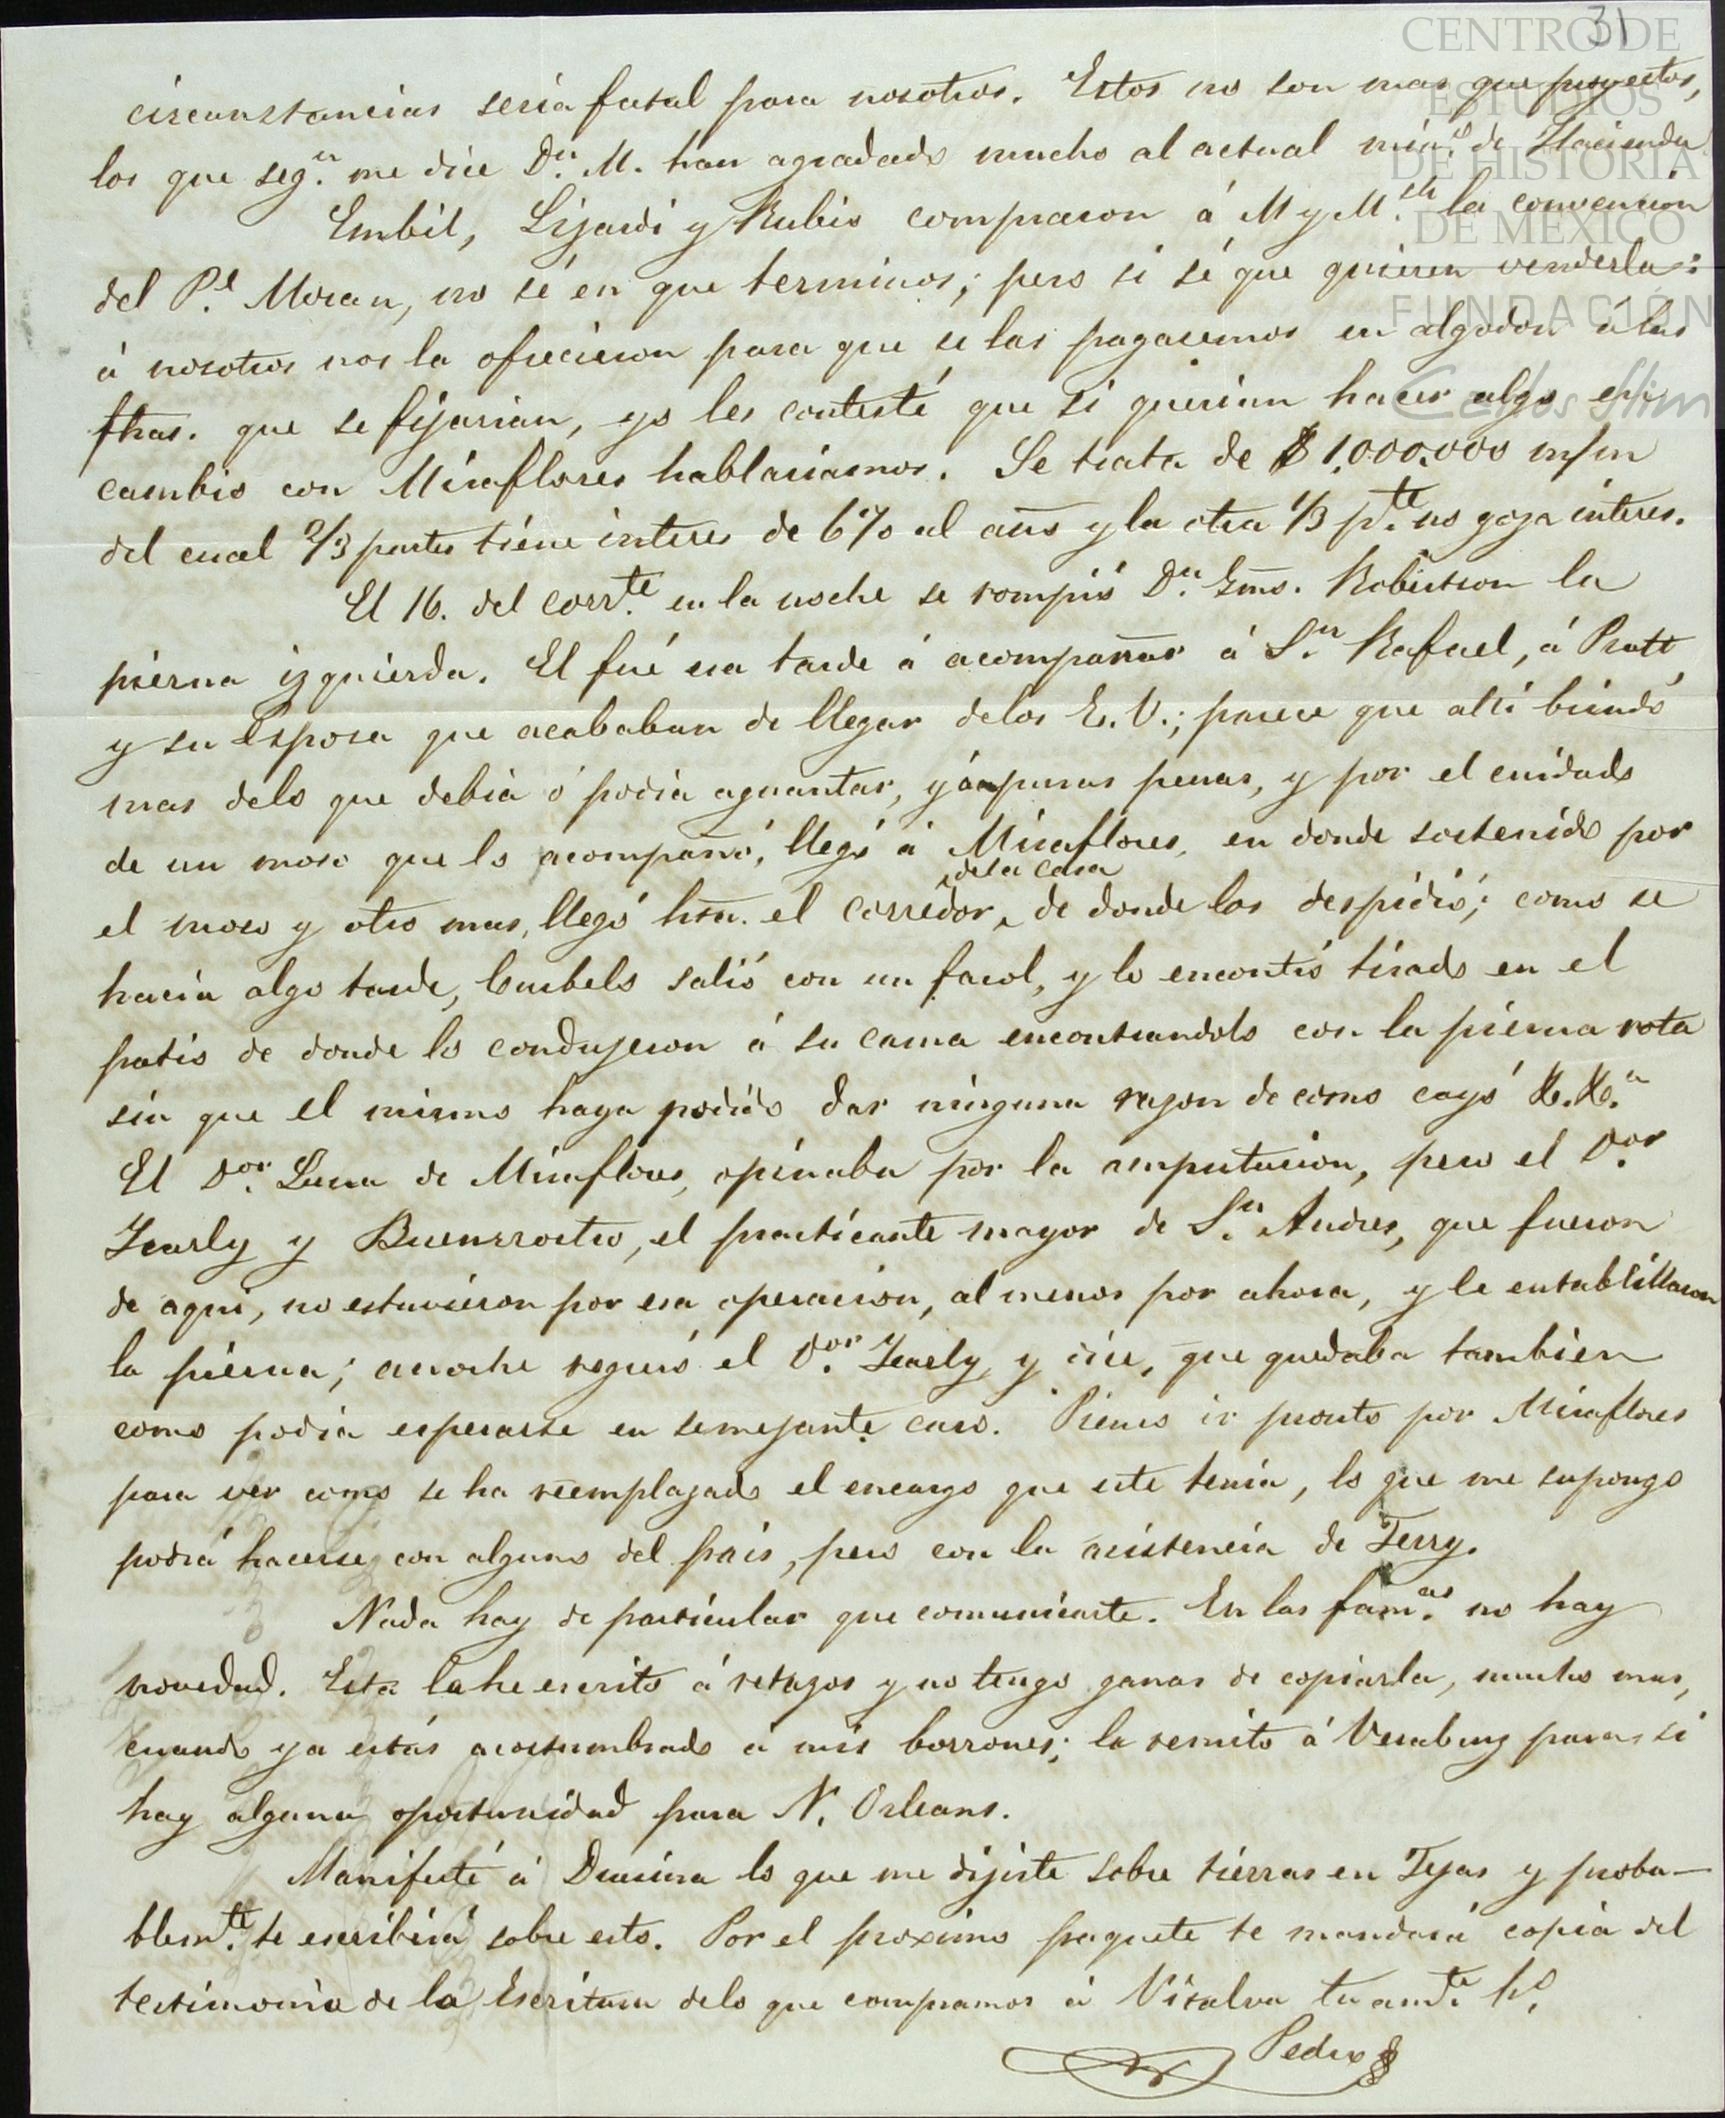 31
CENTRO DE
ESTUDIOS
DE HISTORIA
DE MEXICO
FUNDACIÓN
Carlos Slim
circunstancias seria fatal para nosotros. Estos no son mas que proyectos,
los que seg.n me dice D.n M. han agradado mucho al actual min.o de Hacienda
Embil, Lizardi y Rubio compraron á M y M.
la convencion
del P.e Moran, no sé en que terminos; pero si sé que quieren venderla:
á nosotros nos la ofrecieron para que se las pagasemos en algodon a las
fhas. que se fijarian, yo les contesté que si querian hacer algo en
cambio con Miraflores hablariamos. Se trata de $1,000.000 m/m
del cual 2/3 partes tiene interes de 6% al año y la otra 1/3 p.te no goza interes.
El 16. del corr.te en la noche se rompió D.n Gmo. Robertson la
pierna izquierda. El fué esa tarde á acompañar á S.n Rafael, á Pratt
y su Esposa que acababan de llegar delos E. U.; parece que alli brindó
mas delo que debia ó podia aguantar, y á apuras penas, y por el cuidado
de un moso que lo acompañó, llegó á Miraflores, en donde sostenido por
el moso y otro mas, llegó hta. el corredor, dela casa de donde los despidió; como se
hacia algo tarde, Curbelo salió con un farol, y lo encontró tirado en el
patio de donde lo condujeron á su cama encontrandolo con la pierna rota
sin que el mismo haya podido dar ninguna razon de como cayó
El D.or Luna de Miraflores, opinaba por la amputacion, pero el D.or
y Buenrrostro, el practicante mayor de S.n Andres, que fueron
de aqui, no estuvieron por esa operacion, al menos por ahora, y le entablillaron
la pierna; anoche regresó el D.or
y dice, que quedaba tambien
como podia esperarse en semejante caso. Pienso ir pronto por Miraflores
para ver como se ha reemplazado el encargo que este tenia, lo que me supongo
podrá hacerse con alguno del pais, pero con la asistencia de Terry.
Nada hay de particular que comunicarte. En las fam.as no hay
novedad. Esta la he escrito á retazos y no tengo ganas de copiarla, mucho mas,
cuando ya estás acostumbrado a mis borrones; la remito á Veracruz para si
hay alguna oportunidad para N. Orleans.
Manifesté á Drusina lo que me dijiste sobre tierras en Tejas y proba-
blem.te te escribirá sobre esto. Por el proximo paquete te mandará copia del
testimonio de la Escritura delo que compramos á
tu am.te h.o
Pedro